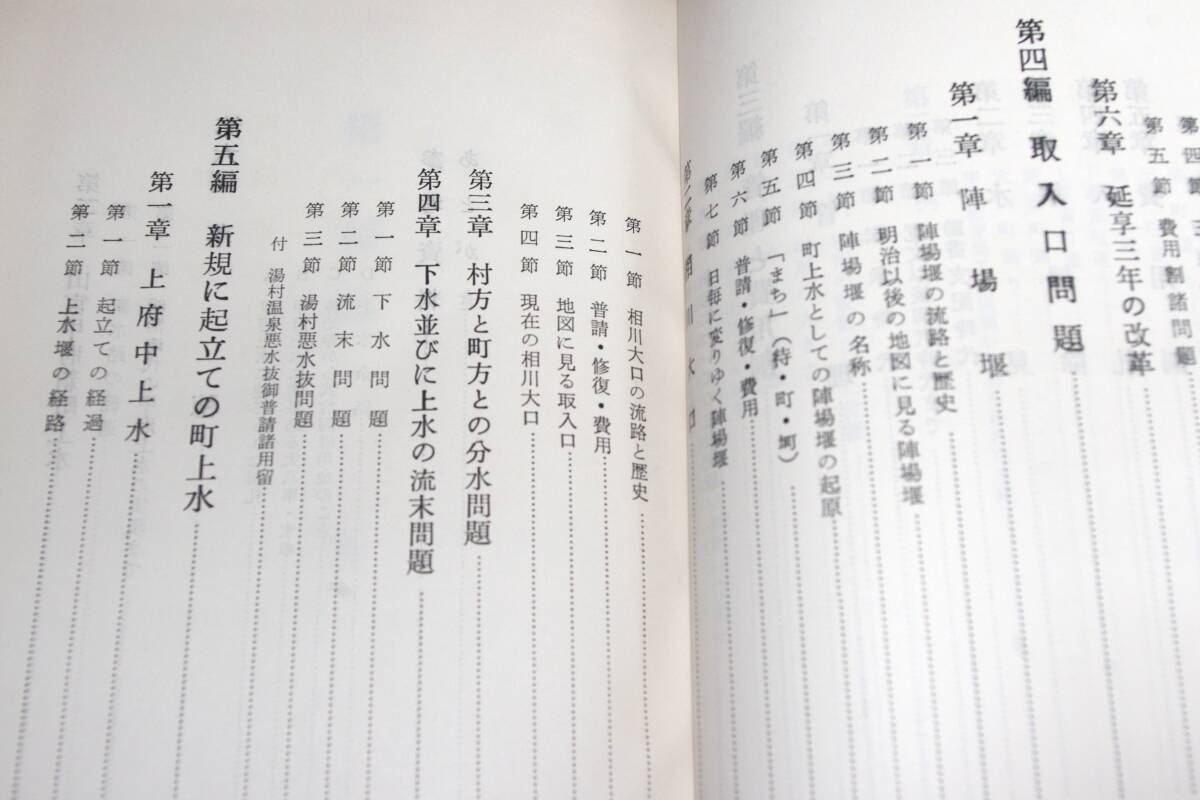 第四節
第五節 費用割諸問題
第六章 延享三年の改革
第四編 取入口問題
第一章 陣場堰
第一節 陣場堰の流路と歴史
第二節 明治以後の地図に見る陣場堰
第三節 陣場堰の名称
第四節 町上水としての陣場堰の起原
第五節 「まち」(待・町・𡈽)
第六節 普請・修復・費用
第七節 日毎に変りゆく陣場堰
第二章 相川大口
第一節 相川大口の流路と歴史
第二節 普請・修復・費用
第三節 地図に見る取入口
第四節 現在の相川大口
第三章 村方と町方との分水問題
第四章 下水並びに上水の流末問題
第一節 下水問題
第二節 流末問題
第三節 湯村悪水抜問題
付 湯村温泉悪水抜御普請諸用留
第五編 新規に起立ての町上水
第一章 上府中上水
第一節 起立ての経過
第二節 上水堰の経路